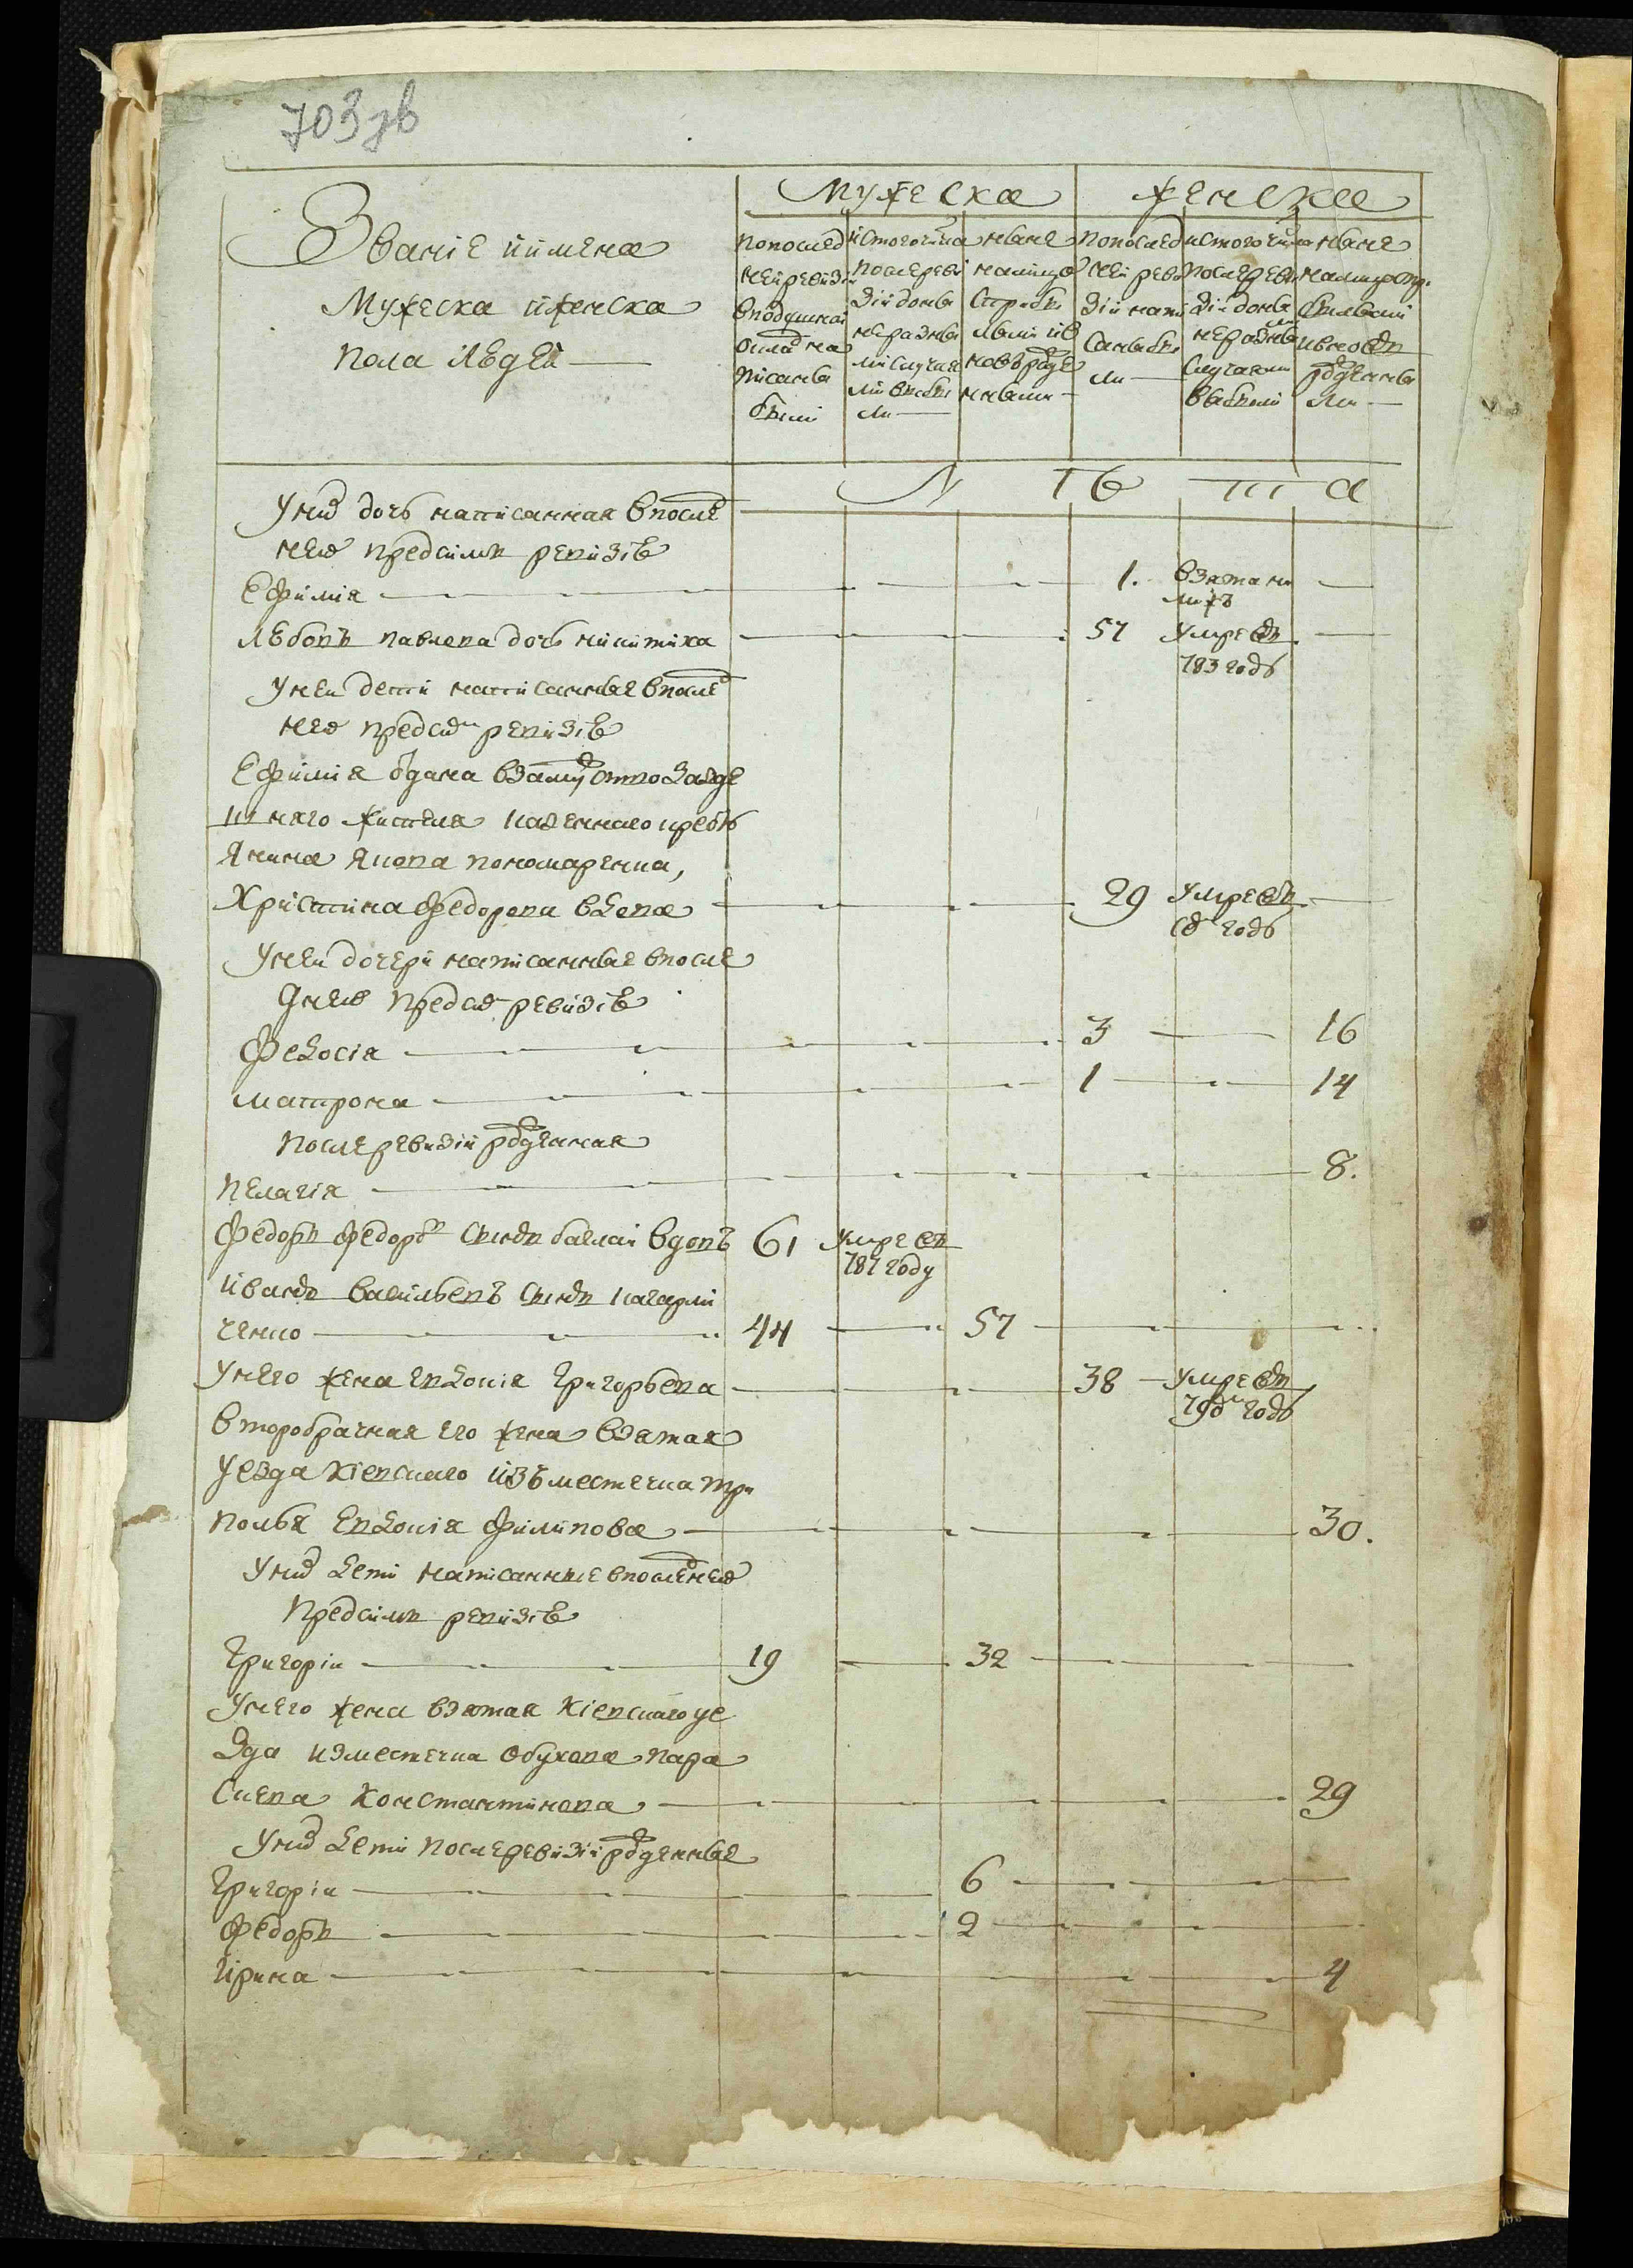 703 зв
Мужеска
женска
Звание и имена
Мужеска и женска
пола людей
по послед
ней ревизии
в подушной
оклад на
писаны
были
ис того числа
после реви
зии доны
не разны
ми случая
ми выбы
ли
ныне
на лицо
с прибы
лыми и в
нов рожде
нными
по послед
ней реви
зии напи
саны бы
ли
ис того числа
после реви
зии доны
не разными
случаями
выбыли
ныне
на лицо
былыми
и вновь
рожденны
ми
Лѣ та
У них дочь написанная в послед
нею пред сим ревизіе
Ефимія 1. взята на
мужъ
Любовъ павлова дочь никитиха 57 умре в
783 годѣ
У неи дети написанные в послед
нею пред сим ревизіе
Ефимія отдана в замуж
шняго жителя казенного
Якова пономаренка,
Христина федорова вдова 29 умре в
годѣ
У неи дочери написанные в после
днею пред сим ревизіе
Федосія 3 16
матрона 1 14
После ревизіи рожденная
Пелагія 8.
федоръ федоров сынъ баглай вдовъ 61 умре в
787 году
Иванъ васильевъ сынъ
ченко 44 57
У него жена евдокія григорьева 38 умре в
годѣ
второбрачная его жена взятая
уезда кіевского изъ местечка три
полья Евдокія филипова 30.
У них дети написанные в последнею
Пред сим ревизіе
Григоріи 19 32
У него жена взятая кіевского уе
зда из местечка обухова пара
скева константинова 29
У них дети после ревизіи рожденные
Григоріи 6
федоръ 2
Ирина 4